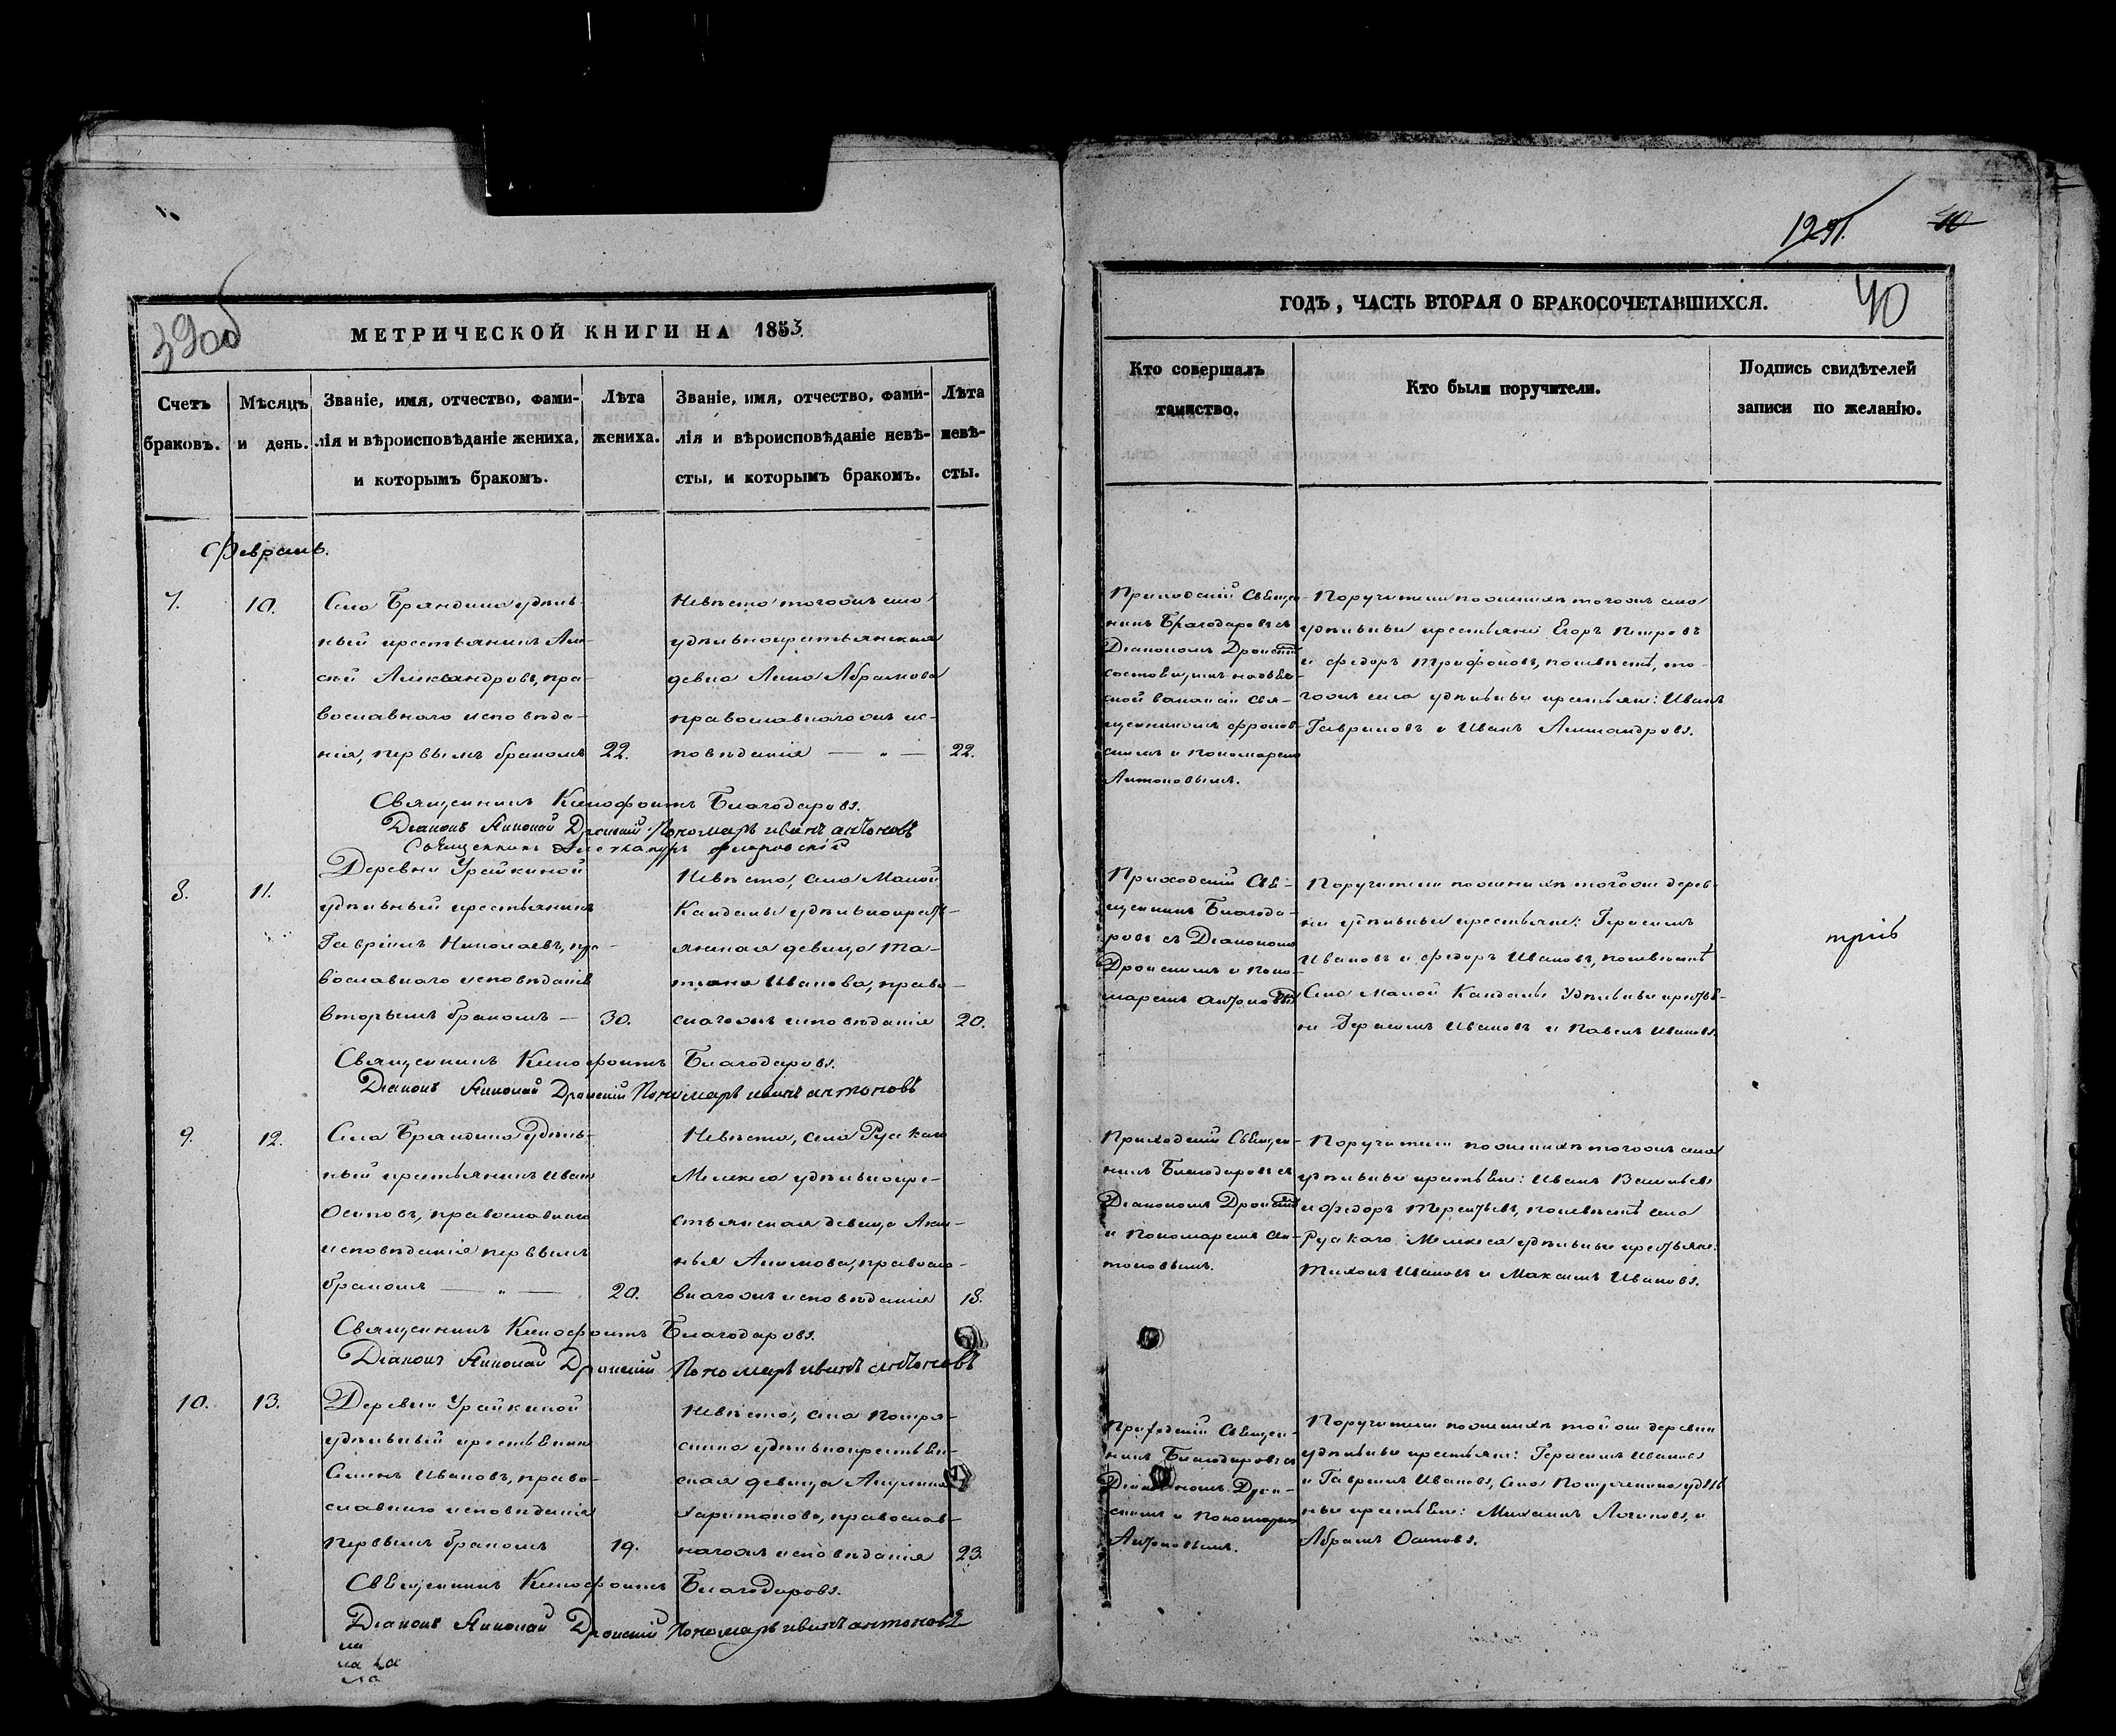 1291.
40
39об
МЕТРИЧЕСКОЙ КНИГИ НА 1853.
Счетъ
браковъ.
Мѣсяцъ
и день.
Званіе, имя, отчество, фами-
лія и вѣроисповѣданіе жениха,
и которымъ бракомъ.
Лѣта
жениха.
Званіе, имя, отчество, фами-
лія и вѣроисповѣданіе невѣ-
сты, и которымъ бракомъ.
Лѣта
невѣ-
сты.
Февраль.
7.
10.
Села Брандина удѣль-
ный крестьянинъ Але-
ксѣй Александровъ, пра-
вославнаго исповѣда-
нія, первымъ бракомъ
22.
Невѣста тогожъ села
удѣльнокрестьянская
девка Анна Абрамова
православнагожъ ис-
повѣданія — „ —
22.
Священникъ Ксенофонтъ Благодаровъ.
Діаконъ Николай Дронскій Пономарь иванъ антоновъ
Священникъ Александръ
8.
11.
Деревни Урайкиной
удѣльный крестьянинъ
Гавріилъ Николаевъ, пра-
вославнаго исповѣданія
вторымъ бракомъ —
30.
Невѣста, села Малой
Кандалы удѣльнокресть-
янская девица Та-
тіана Иванова, право-
славножъ исповѣданія
20.
Священникъ Ксенофонтъ Благодаровъ.
Діаконъ Николай Дронскій Пономарь иванъ антоновъ
9.
12.
Села Брандина Удѣль-
ный крестьянинъ Иванъ
Осиповъ, православнаго
исповѣданія первымъ
бракомъ — „ —
20.
Невѣста, села Рускаго
Мелекеса удѣльнокре-
стьянская девица
Акимова, правосла-
внагожъ исповѣданія
18.
Священникъ Ксенофонтъ Благодаровъ.
Діаконъ Николай Дронскій Пономарь иванъ антоновъ
10.
13.
Деревни Урайкиной
удѣльный крестьянинъ
Семенъ Ивановъ, право-
славнаго исповѣданія
первымъ бракомъ
19.
Невѣста, села
удѣльнокрестьян-
ская девица Акулина
Харитонова, православ-
нагожъ исповѣданія
23.
Священникъ Ксенофонтъ Благодаровъ.
Діаконъ Николай Дронскій Пономарь иванъ антоновъ
ГОДЪ, ЧАСТЬ ВТОРАЯ О БРАКОСОЧЕТАВШИХСЯ.
40
Кто совершалъ
таинство.
Кто были поручители.
Подпись свидѣтелей
записи по желанію.
Приходскій Священ-
никъ Благодаровъ съ
Діакономъ Дронскимъ
ской вакансіи Свя-
щенникомъ
и Пономаремъ
Антоновымъ.
Поручители по женихѣ тогожъ села
удѣльные крестьяне Егоръ Петровъ
и Федоръ Трифоновъ, по невѣстѣ, то-
гожъ села удѣльные крестьяне: Иванъ
Гавриловъ и Иванъ Александровъ.
Приходскій Свя-
щенникъ Благода-
ровъ съ Діакономъ
Дронскимъ и Поно-
маремъ Антоновымъ
Поручители по женихѣ тойже дерев-
ни удѣльные крестьяне: Герасимъ
Ивановъ и Федоръ Ивановъ, по невѣстѣ
Села Малой Кандалы Удѣльные крестья-
не Герасимъ Ивановъ и Павелъ Ивановъ.
Приходскій Священ-
никъ Благодаровъ съ
Діакономъ Дронскимъ
и Пономаремъ Ан-
тоновымъ.
Поручители по женихѣ тогожъ села
удѣльные крестьяне: Иванъ Васильевъ
и Федоръ Терентьевъ, по невѣстѣ села
Рускаго Мелекеса удѣльные крестьяне:
Тихонъ Ивановъ и Максимъ Ивановъ.
Приходскій Священ-
никъ Благодаровъ съ
Діакономъ Дрон-
скимъ и Пономаремъ
Антоновымъ.
Поручители по женихѣ тойже деревни
удѣльные крестьяне: Герасимъ Ивановъ
и Гавріилъ Ивановъ, Села удѣль-
ные крестьяне: Михаилъ Логиновъ, и
Абрамъ Осиповъ.